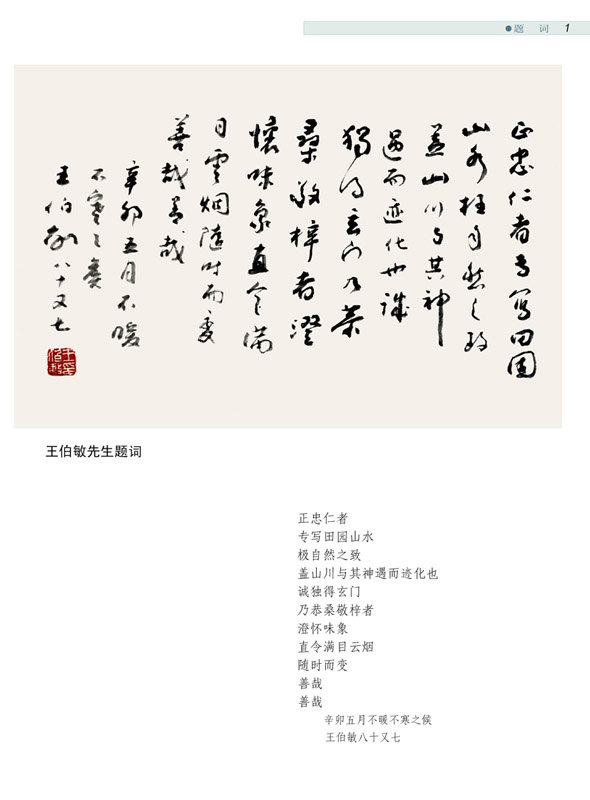 题 词 1
正忠仁者专写田園
山水極自然之致
蓋山川与其神
遇而迹化也诚
獨得玄门乃恭
桑敬梓者澄
懷味象直令满
目雲烟随时而变
善哉善哉
辛卯五月不暖
不寒之候
王伯敏八十又七
王伯敏先生题词
正忠仁者
专写田园山水
极自然之致
盖山川与其神遇而迹化也
诚独得玄门
乃恭桑敬梓者
澄怀味象
直令满目云烟
随时而变
善哉
善哉
辛卯五月不暖不寒之候
王伯敏八十又七